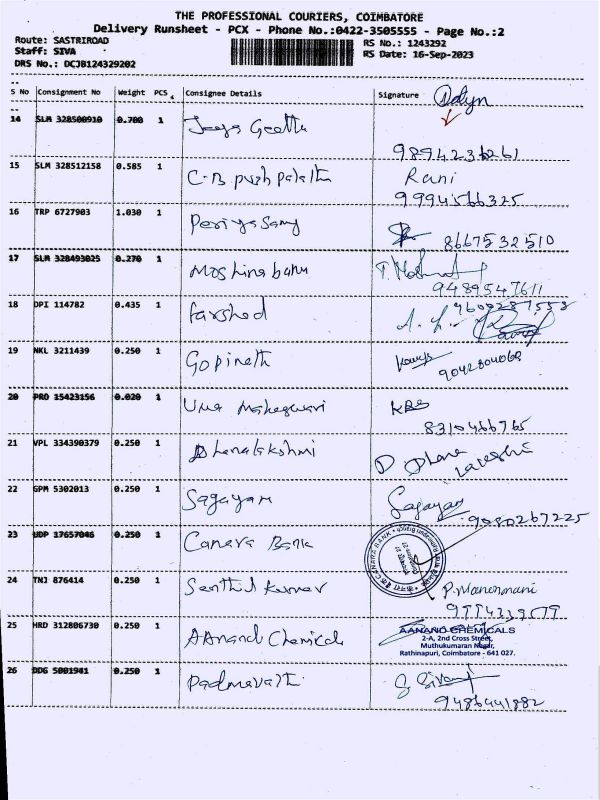 THE PROFESSIONAL COURIERS, COIMBATORE
Delivery Runsheet - PCX - Phone No.:0422-3505555 - Page No.:2
Route: SASTRIROAD RS No.: 1243292
Staff: SIVA RS Date: 16-Sep-2023
DRS No.: DCJB124329202
S No Consignment No Weight PCS Consignee Details Signature
14 SLM 328500910 0.700 1 Jeeya Geetha
9894236261
15 SLM 328512158 0.585 1 C.B pushpalatha Rani
9994566325
16 TRP 6727903 1.030 1 Periyasamy
8667532510
17 SLM 328493025 0.270 1 Moshina banu
9489547611
18 DPI 114782 0.435 1 Farshod
19 NKL 3211439 0.250 1 Gopinath
9042804068
20 PRO 15423156 0.020 1 Uma Maheswari
8310466765
21 VPL 334390379 0.250 1 Dhanalakshmi D Dhana
lakshmi
22 GPM 5302013 0.250 1 Sagayam Sagayam
9080267225
23 UDP 17657046 0.250 1 Canara Bank
CANARA BANK
24 TNJ 876414 0.250 1 Senthil kumar P. Manonmani
25 HRD 312806730 0.250 1 AAnand Chemicals AANAND CHEMICALS
2-A, 2nd Cross Street,
Muthukumaran Nagar,
Rathinapuri, Coimbatore - 641 027.
26 DDG 5001941 0.250 1 Padmavathi
9486441882